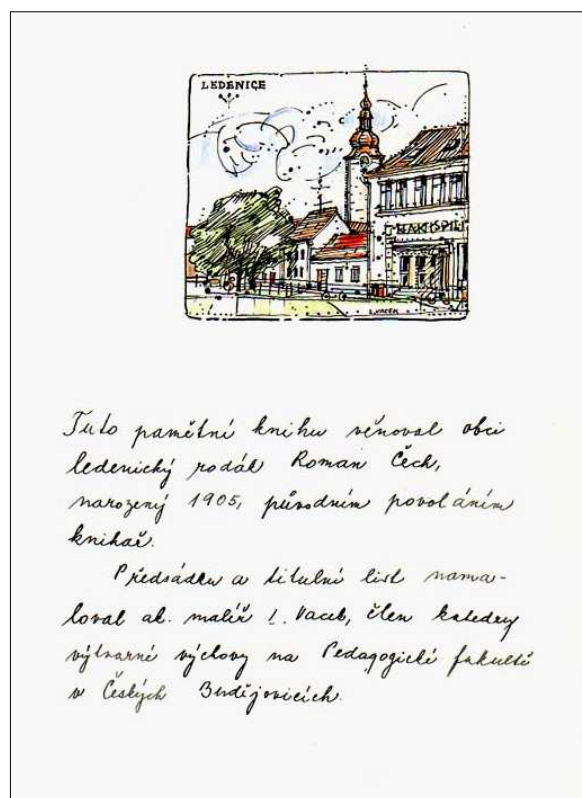 LEDENICE
L. VACEK
Tuto pamětní knihu věnoval obci
ledenický rodák Roman Čech,
narozený 1905, původním povoláním
knihař.
Předsádku a titulní list nama-
loval ak. malíř L. Vacek, člen katedry
výtvarné výchovy na Pedagogické fakultě
v Českých Budějovicích.